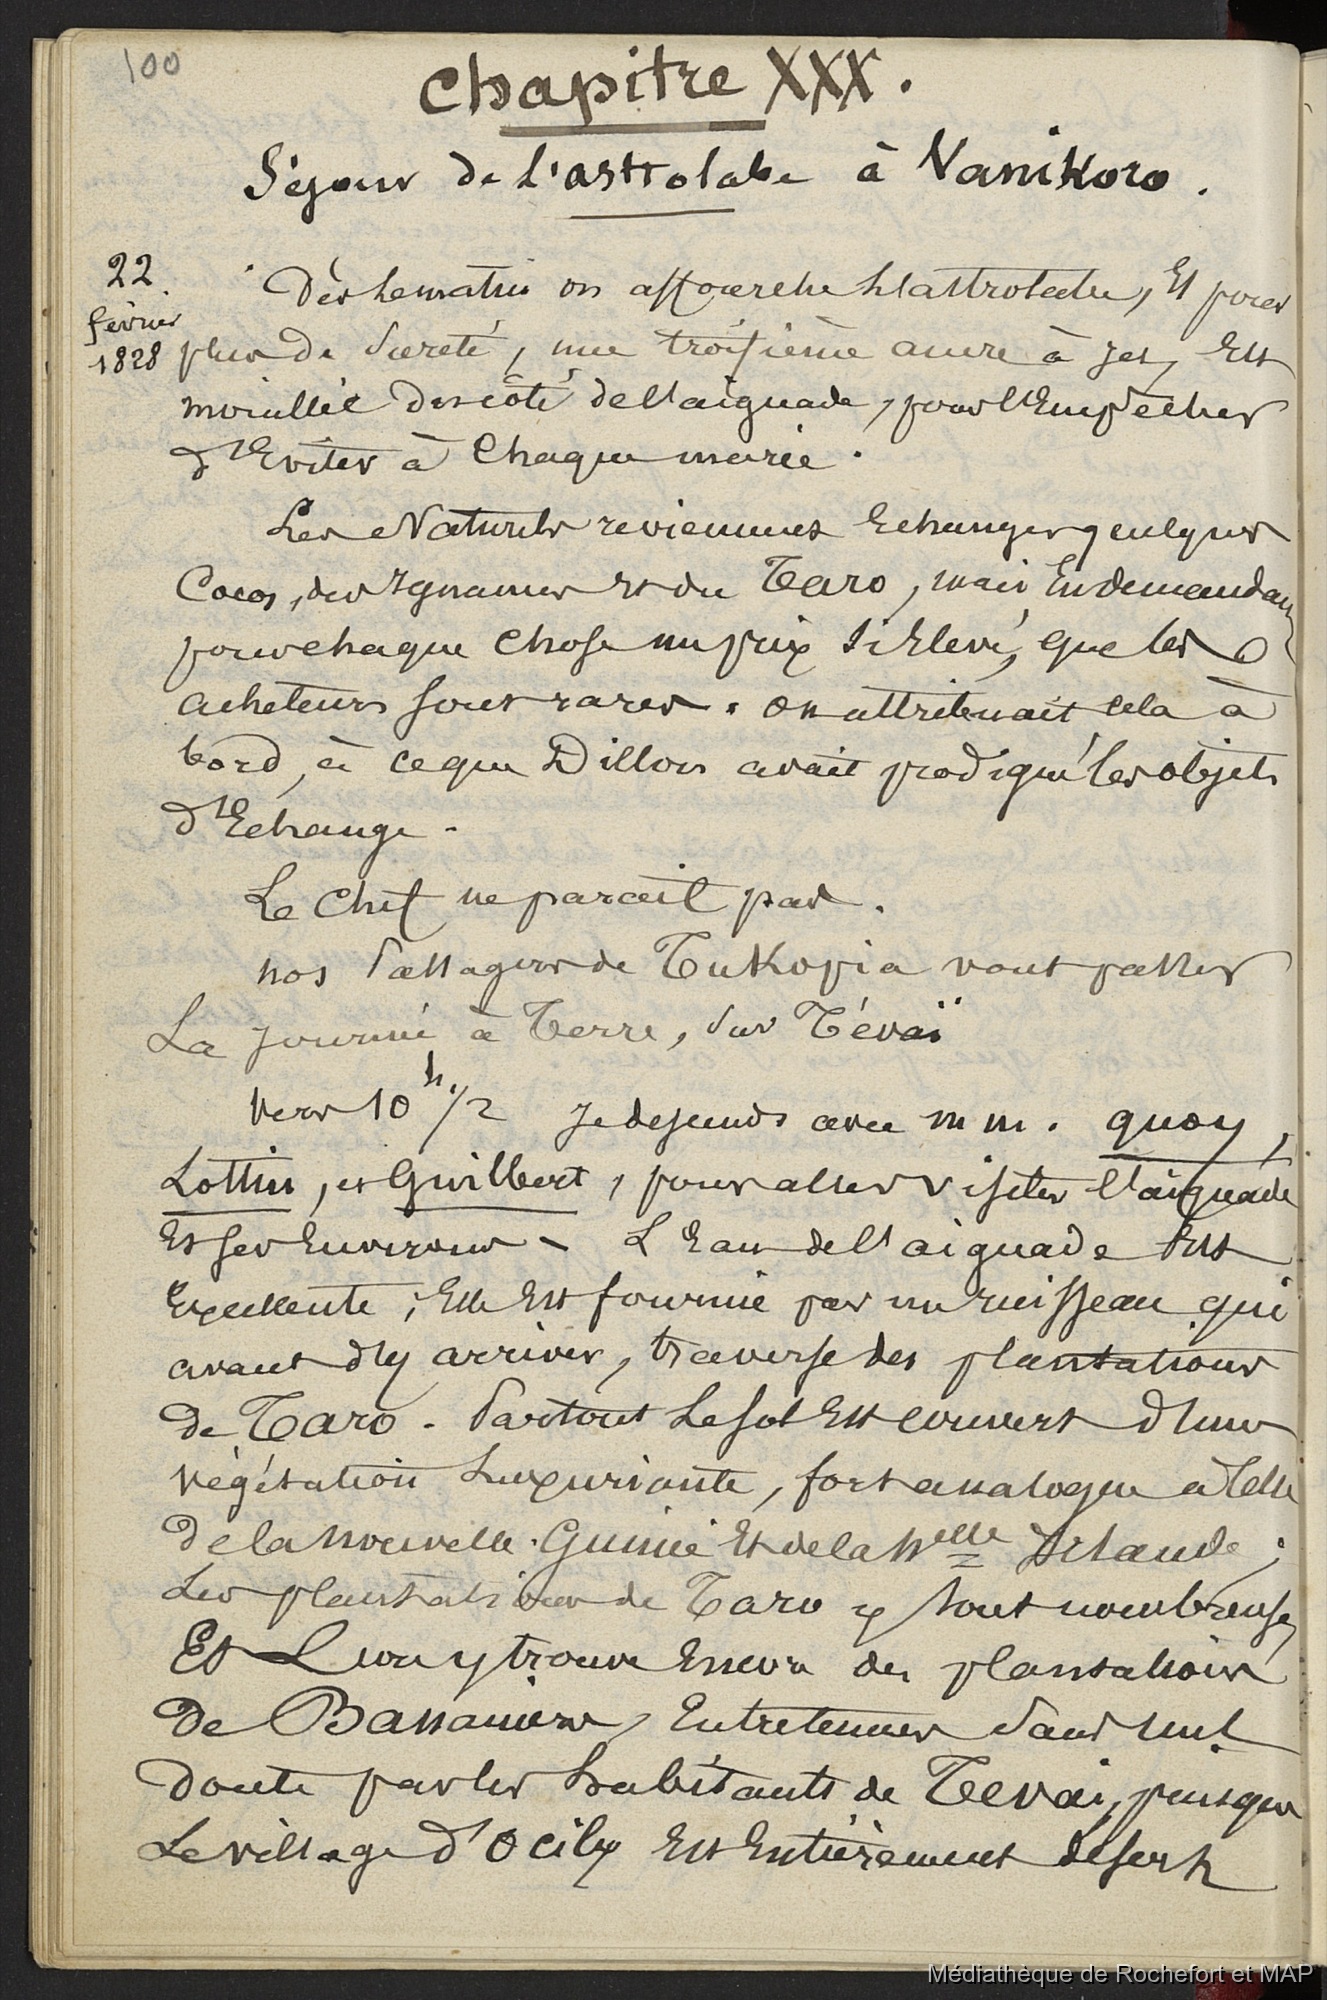 100
Chapitre XXX.
Séjour de l'astrolabe à Vanikoro.
22
février
1828
Dès le matin on affourche l'astrolabe, Et pour
plus de sureté, une troisième ancre à jet, Est
mouillée du côté de l'aiguade, pour l'Empêcher
d'Eviter à Chaque marée.
Les Naturels reviennent Echanger quelques
Cocos, des Ignames Et du Taro, mais En demandant
pour chaque chose un prix si Elevé, que les
acheteurs sont rares. on attribuait cela à
bord, à ce que Dillon avait prodigué les objets
d'Echange.
Le Chef ne parait pas.
nos Passagers de Tukopia vont passer
La journée à Terre, sur Tévaï
Vers 10 h. 1/2 je descends avec m m. quoy,
Lottin, et Guilbert, pour aller visiter l'aiguade
Et ses Environs - L'Eau de l'aiguade Est
Excellente ; Elle Est fournie par un ruisseau qui
avant d'y arriver, traverse des plantations
de Taro. Partout le sol Est couvert d'une
végétation Luxuriante, fort analogue à celle
de la Nouvelle-Guinée Et de la Nelle Irlande ;
Les plantations de Taro y sont nombreuses
Et L'on y trouve Encore des plantations
de Bananiers, Entretenues sans nul
doute par les habitants de Tevai, puisque
Le village d'Ocily Est Entièrement désert
Médiathèque de Rochefort et MAP